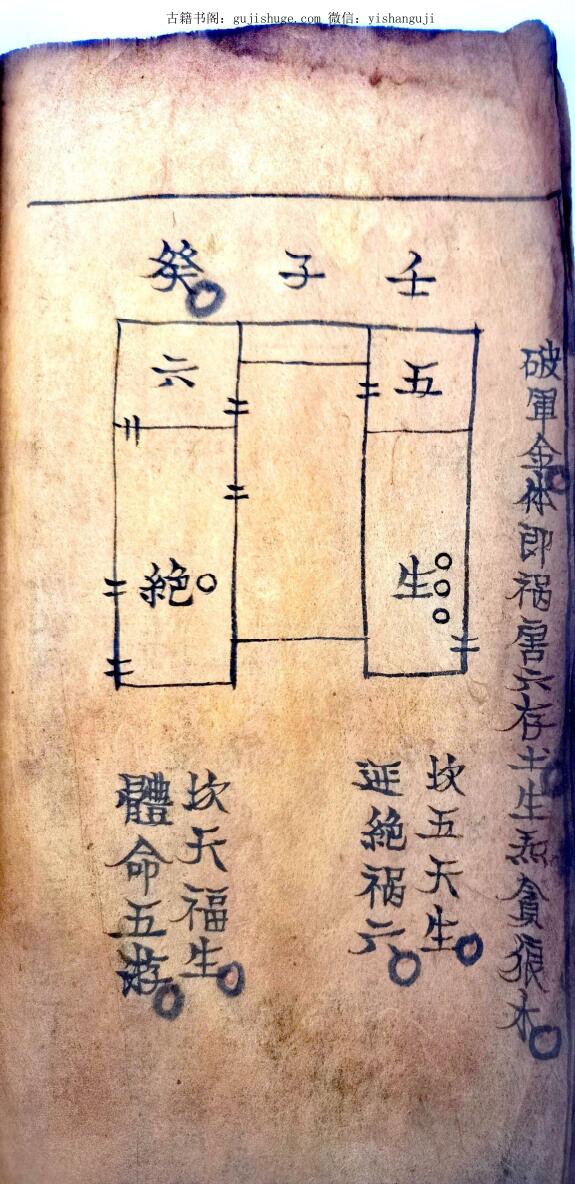 古籍书阁：gujishuge.com 微信：yishanguji
破軍金体即祸害六存土生炁貪狼木
壬
子
癸
五
六
生
絕
坎五天生
延絕祸六
坎天福生
體命五游